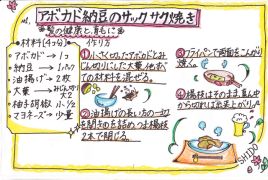 アボカド納豆のサックサク焼き
髪の健康と育毛に
材料(4つ分)
作り方
アボカド→1コ
納豆→1パック
油揚げ→2枚
大葉→みじん切り大2
柚子胡椒→小1/2
マヨネーズ→少量
①小さく切ったアボカドとみじん切りにした大葉、他すべての材料を混ぜる。
②油揚げの長い方の一辺を開き①を詰めつま楊枝2本で閉じる。
③フライパンで両面をこんがり焼く。
④楊枝はそのまま、真ん中から切れば出来上がり。
SHIDO